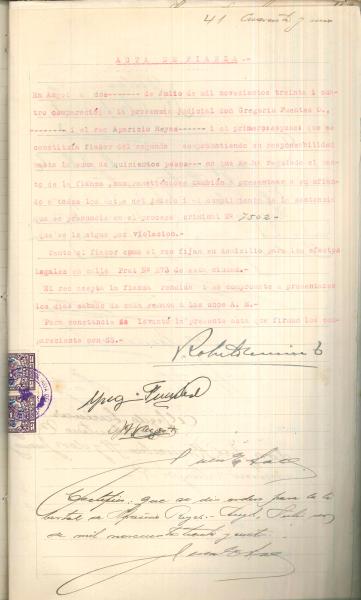 41 Cuarenta y uno
ACTA DE FIANZA.-
En Angol a dos------- de Julio de mil novecientos treinta i cua
tro compareció a la presencia judicial don Gregorio Fuentes U.,
-------- i el reo Aparicio Reyes------ i el primero expuso que se
constituía fiador del segundo comprometiendo su responsabilidad
hasta la suma de quinientos pesos---- en que se ha regulado el mon
to de la fianza, comprometiéndose también a presentar a su afian-
do a todos los actos del juicio i al cumplimiento de la sentencia
que se pronuncie en el proceso criminal Nº 7502.-
que se le sigue por violacion.-
Tanto el fiador como el reo fijan su domicilio para los efectos
legales en calle Prat Nº 173 de esta ciudad.-
El reo acepta la fianza rendida i se compromete a presentarse
los días sábado de cada semana a las once A. M.-
Para constancia se levantó la presente acta que firman los com-
parecientes con SS.-
Certifico: que se dió orden para la li
bertad de Aparicio Reyes. Angol, Julio dos
de mil novecientos treinta y cuatro.